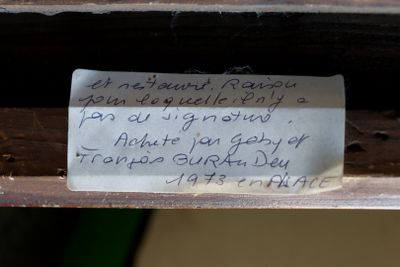 et restauré. Raison
pour laquelle il n'y a
pas de signature.
Acheté par Gaby et
François BURANDEU
1973 en ALSACE